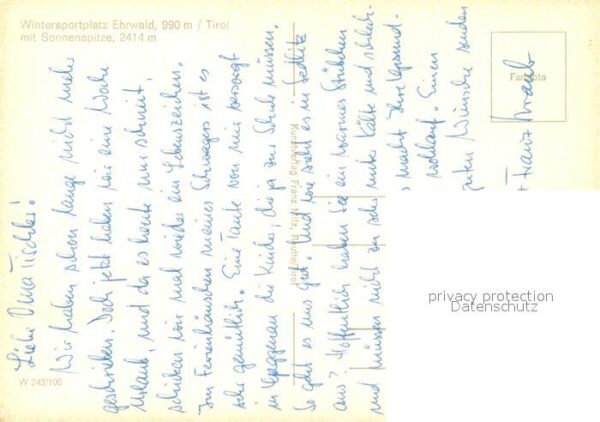 Wintersportplatz Ehrwald, 990 m / Tirol
mit Sonnenspitze, 2414 m
Farbfoto
Kunstverlag Franz Milz, Reutte/Tirol
W 243/100
privacy protection
Datenschutz
Liebe Oma Tischler!
Wir haben schon lange nicht mehr
geschrieben. Doch jetzt haben wir eine Woche
Urlaub, und da es heute nur schneit,
schicken wir mal wieder ein Lebenszeichen.
Im Ferienhäuschen meines Schwagers ist es
sehr gemütlich. Eine Tante von mir versorgt
in die Kinder, die ja zur Schule müssen.
So geht es uns gut. Und wie sieht es in
aus? Hoffentlich haben Sie ein warmes Stübchen
und müssen nicht zu sehr unter Kälte und
macht Ihre
Einen
guten Wünsche senden
Franz